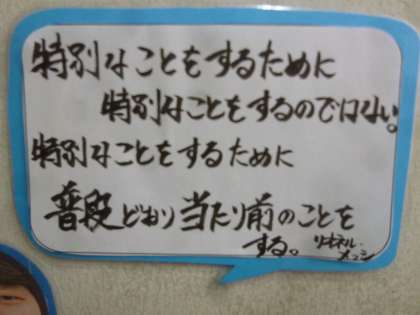 特別なことをするために
特別なことをするのではない。
特別なことをするために
普段どおり当たり前のことを
する。
リオネル・
メッシ